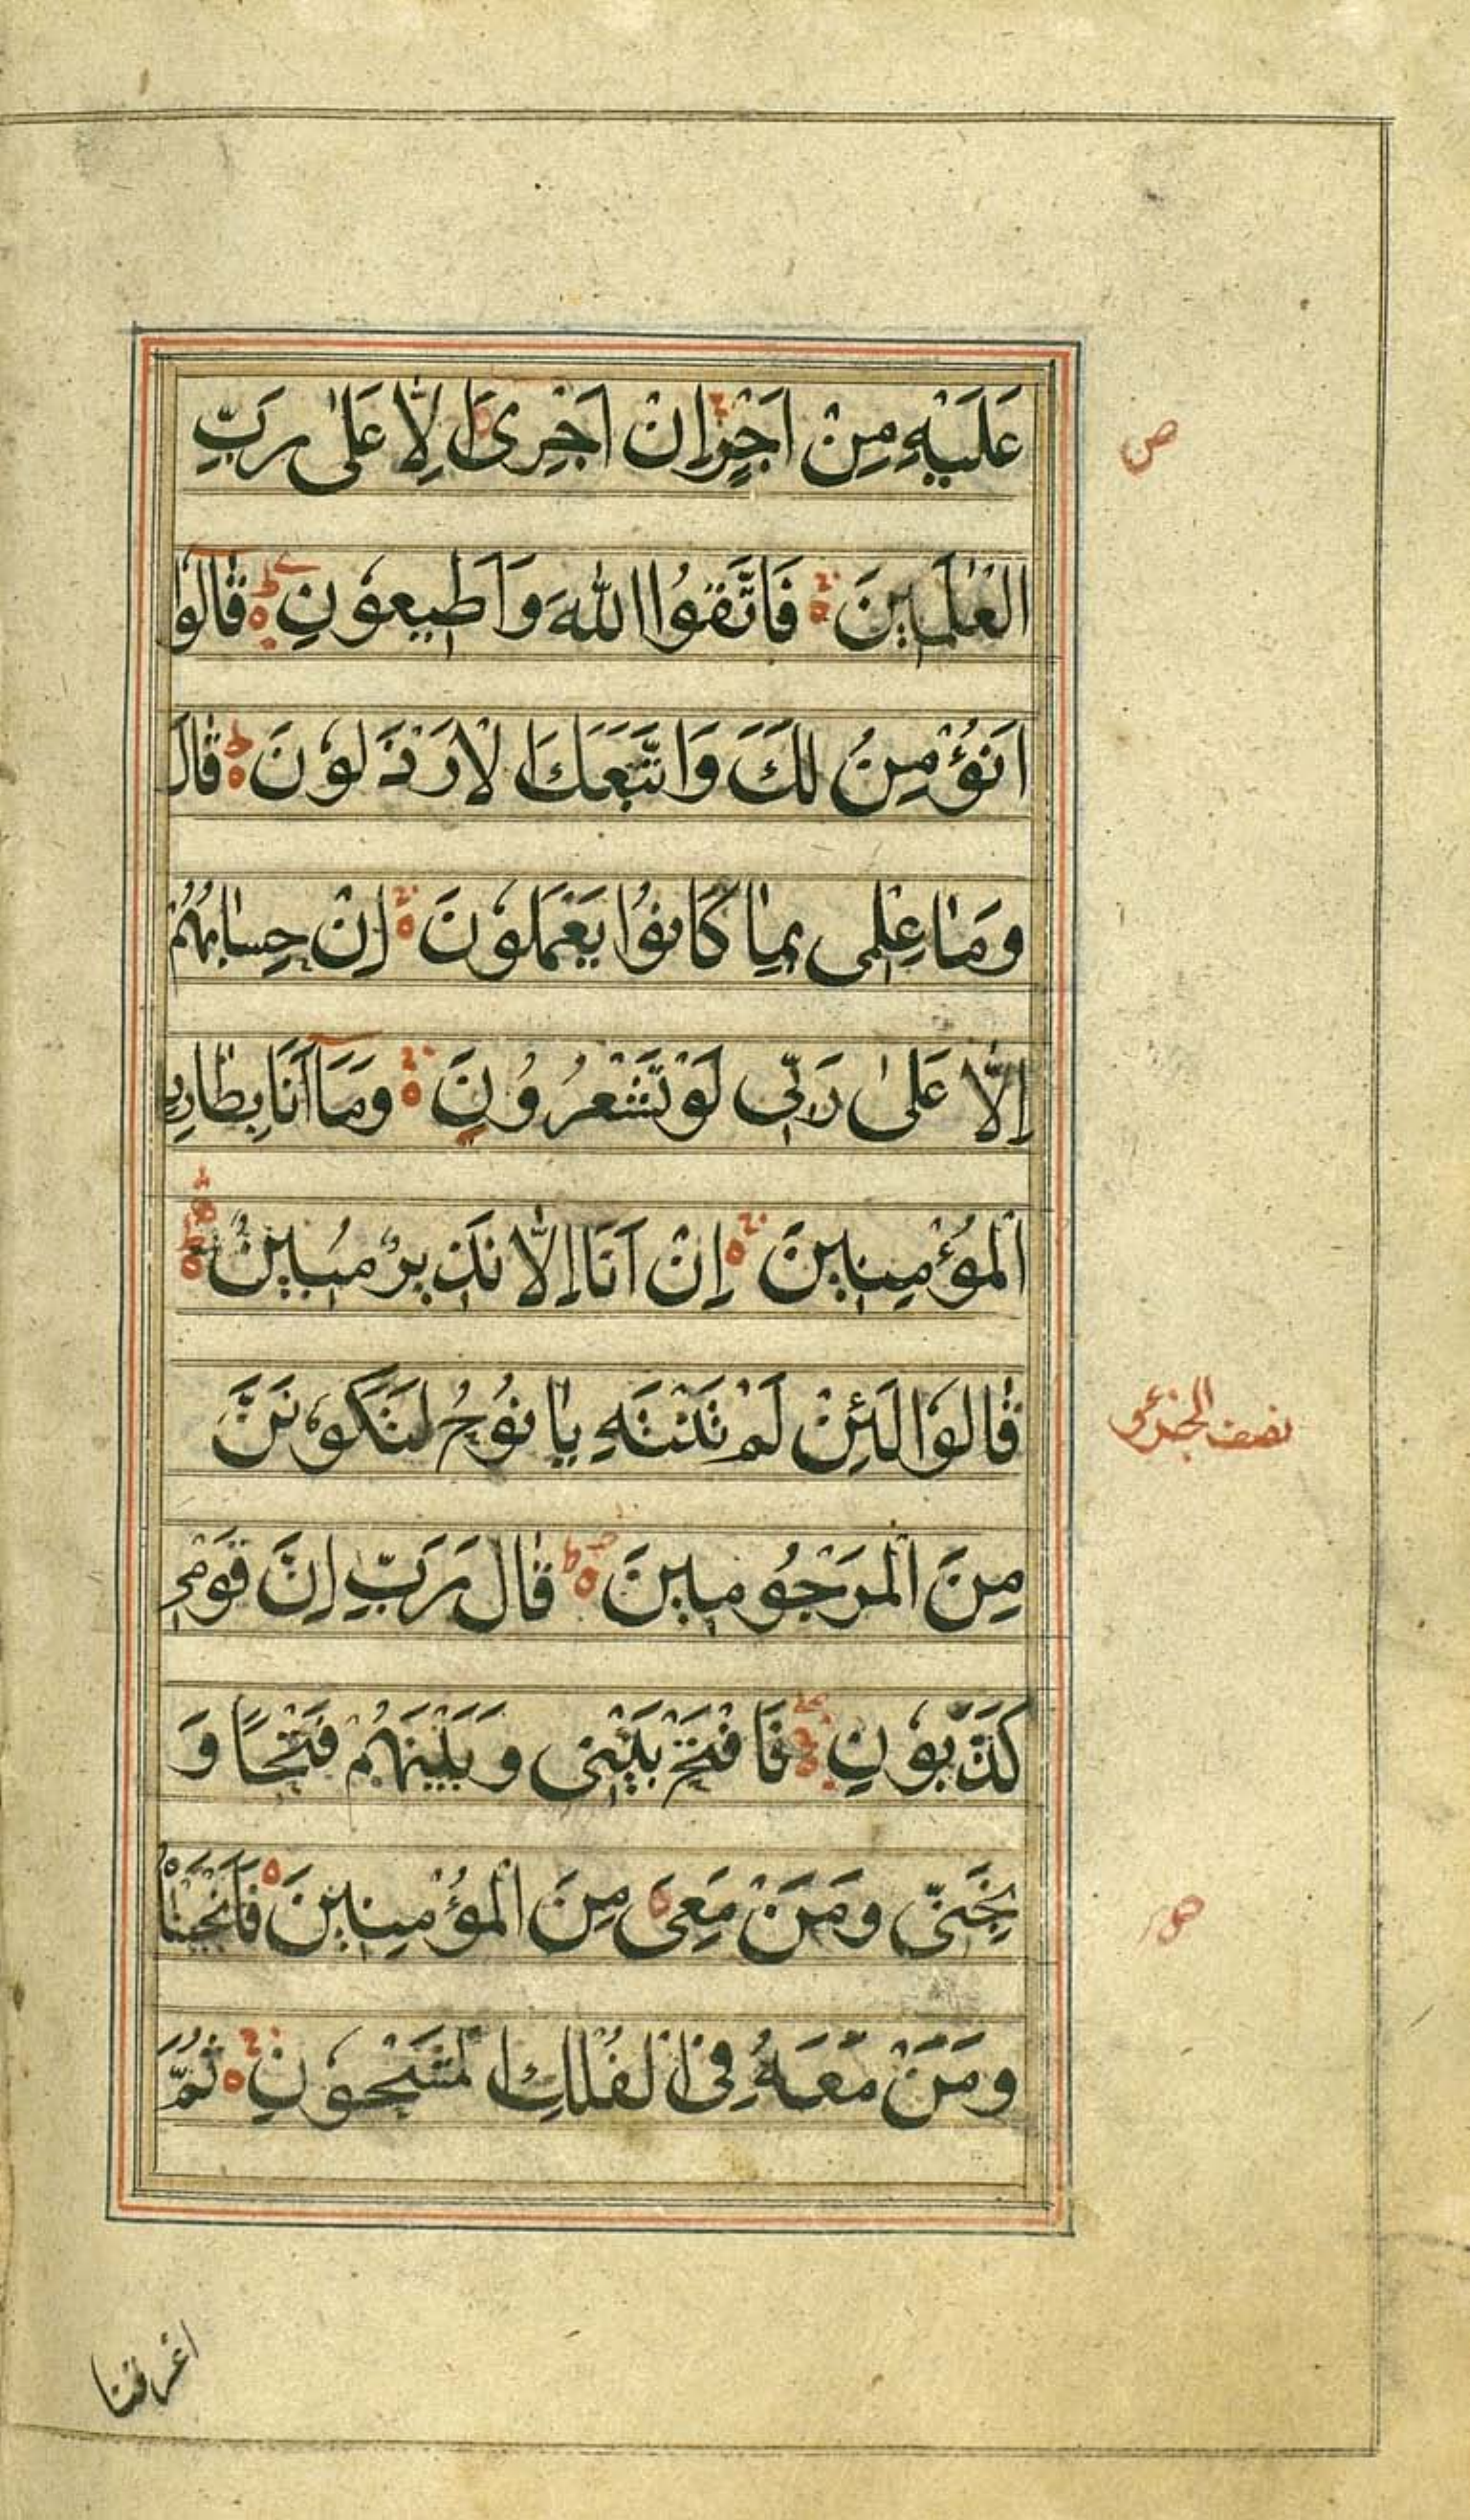 عَلَيْهِ مِنْ اَجْرٍ اِنْ اَجْرِىَ اِلَّا عَلٰى رَبِّ
ص
الْعٰلَمِينَ فَاتَّقُوا اللّٰهَ وَاَطِيعُونِ قَالُوا
اَنُؤْمِنُ لَكَ وَاتَّبَعَكَ الْاَرْذَلُونَ قَالَ
وَمَا عِلْمِى بِمَا كَانُوا يَعْمَلُونَ اِنْ حِسَابُهُمْ
اِلَّا عَلٰى رَبِّى لَوْ تَشْعُرُونَ وَمَا اَنَا بِطَارِدِ
الْمُؤْمِنِينَ اِنْ اَنَا اِلَّا نَذِيرٌ مُبِينٌ
قَالُوا لَئِنْ لَمْ تَنْتَهِ يَا نُوحُ لَتَكُونَنَّ
نصف الجزء
مِنَ الْمَرْجُومِينَ قَالَ رَبِّ اِنَّ قَوْمِى
كَذَّبُونِ فَافْتَحْ بَيْنِى وَبَيْنَهُمْ فَتْحًا وَ
نَجِّنِى وَمَنْ مَعِىَ مِنَ الْمُؤْمِنِينَ فَاَنْجَيْنَاهُ
وَمَنْ مَعَهُ فِى الْفُلْكِ الْمَشْحُونِ ثُمَّ
اغرقنا